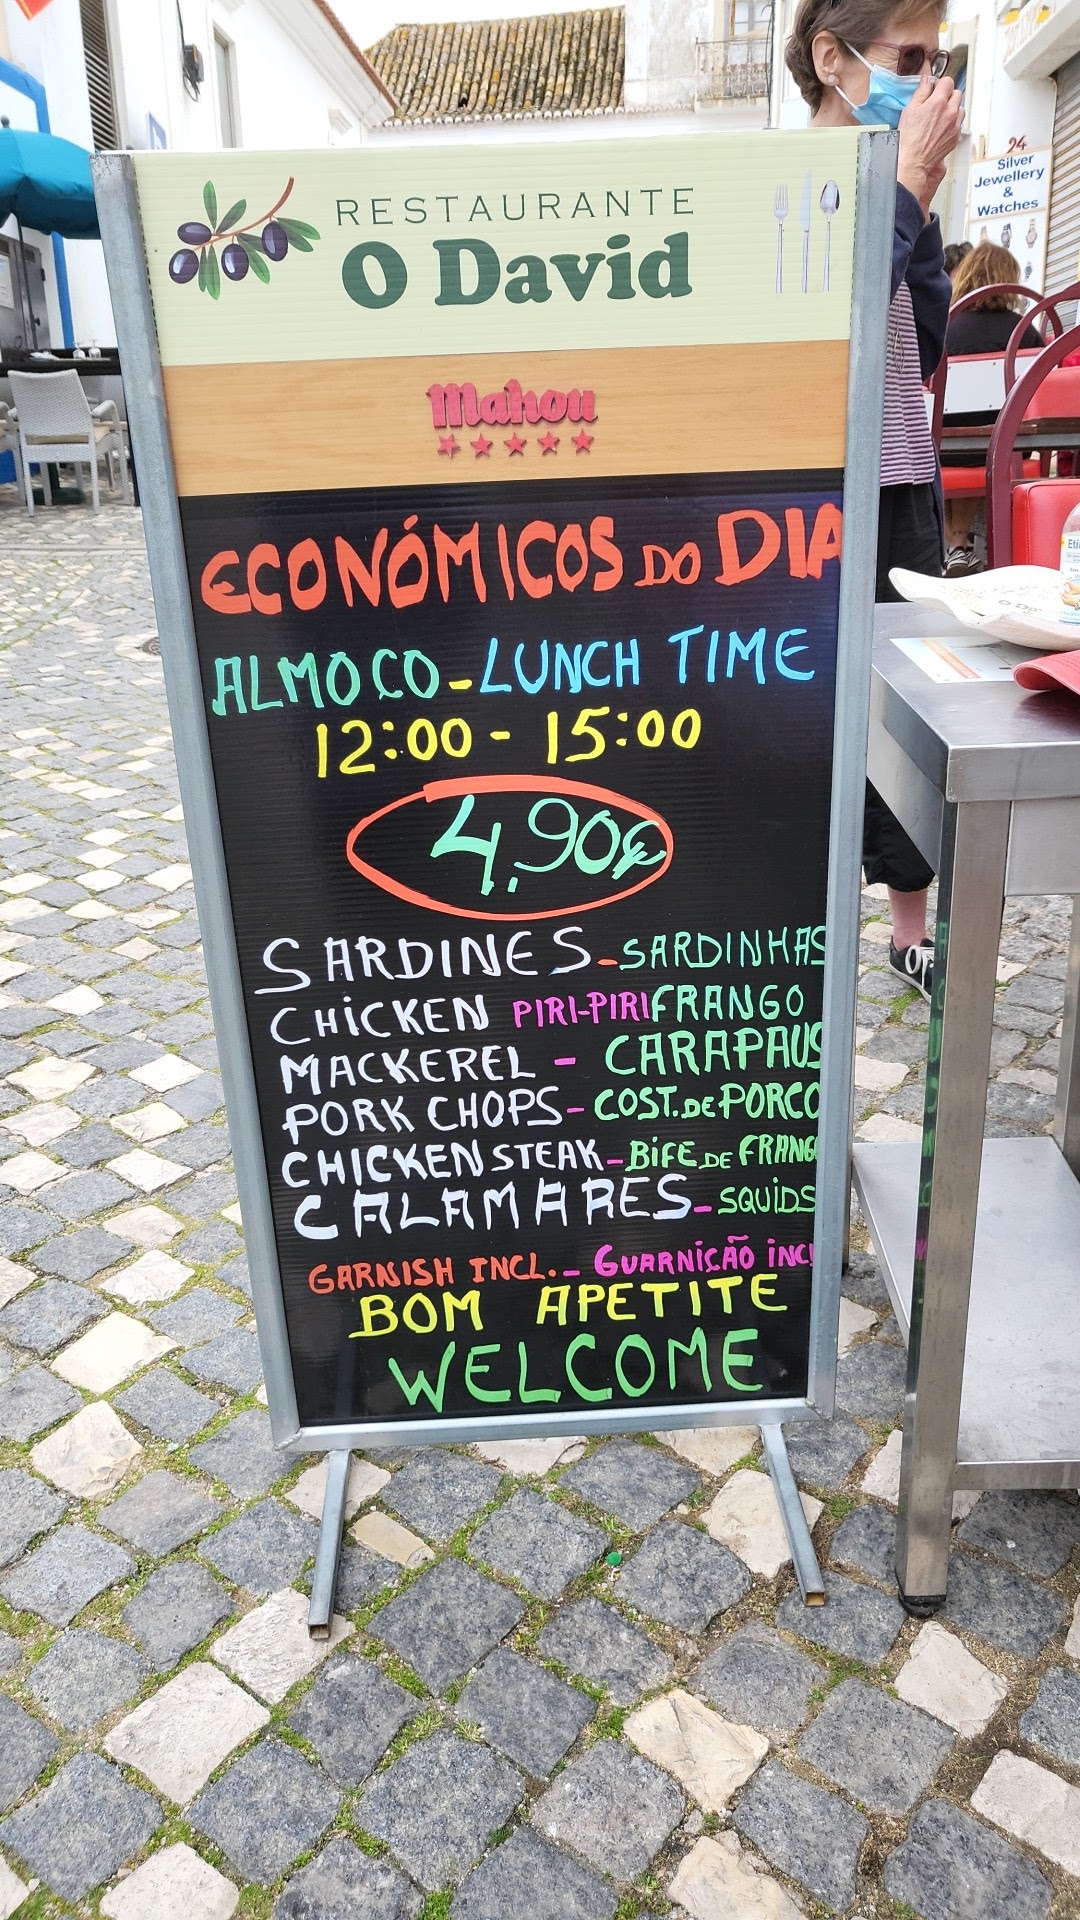 RESTAURANTE
O David
Mahou
ECONÓMICOS DO DIA
ALMOCO - LUNCH TIME
12:00 - 15:00
4,90€
SARDINES - SARDINHAS
CHICKEN PIRI-PIRI FRANGO
MACKEREL - CARAPAUS
PORK CHOPS - COST. DE PORCO
CHICKEN STEAK - BIFE DE FRANGO
CALAMARES - SQUIDS
GARNISH INCL. - GUARNIÇÃO INCL
BOM APETITE
WELCOME
24
Silver
Jewellery
&
Watches